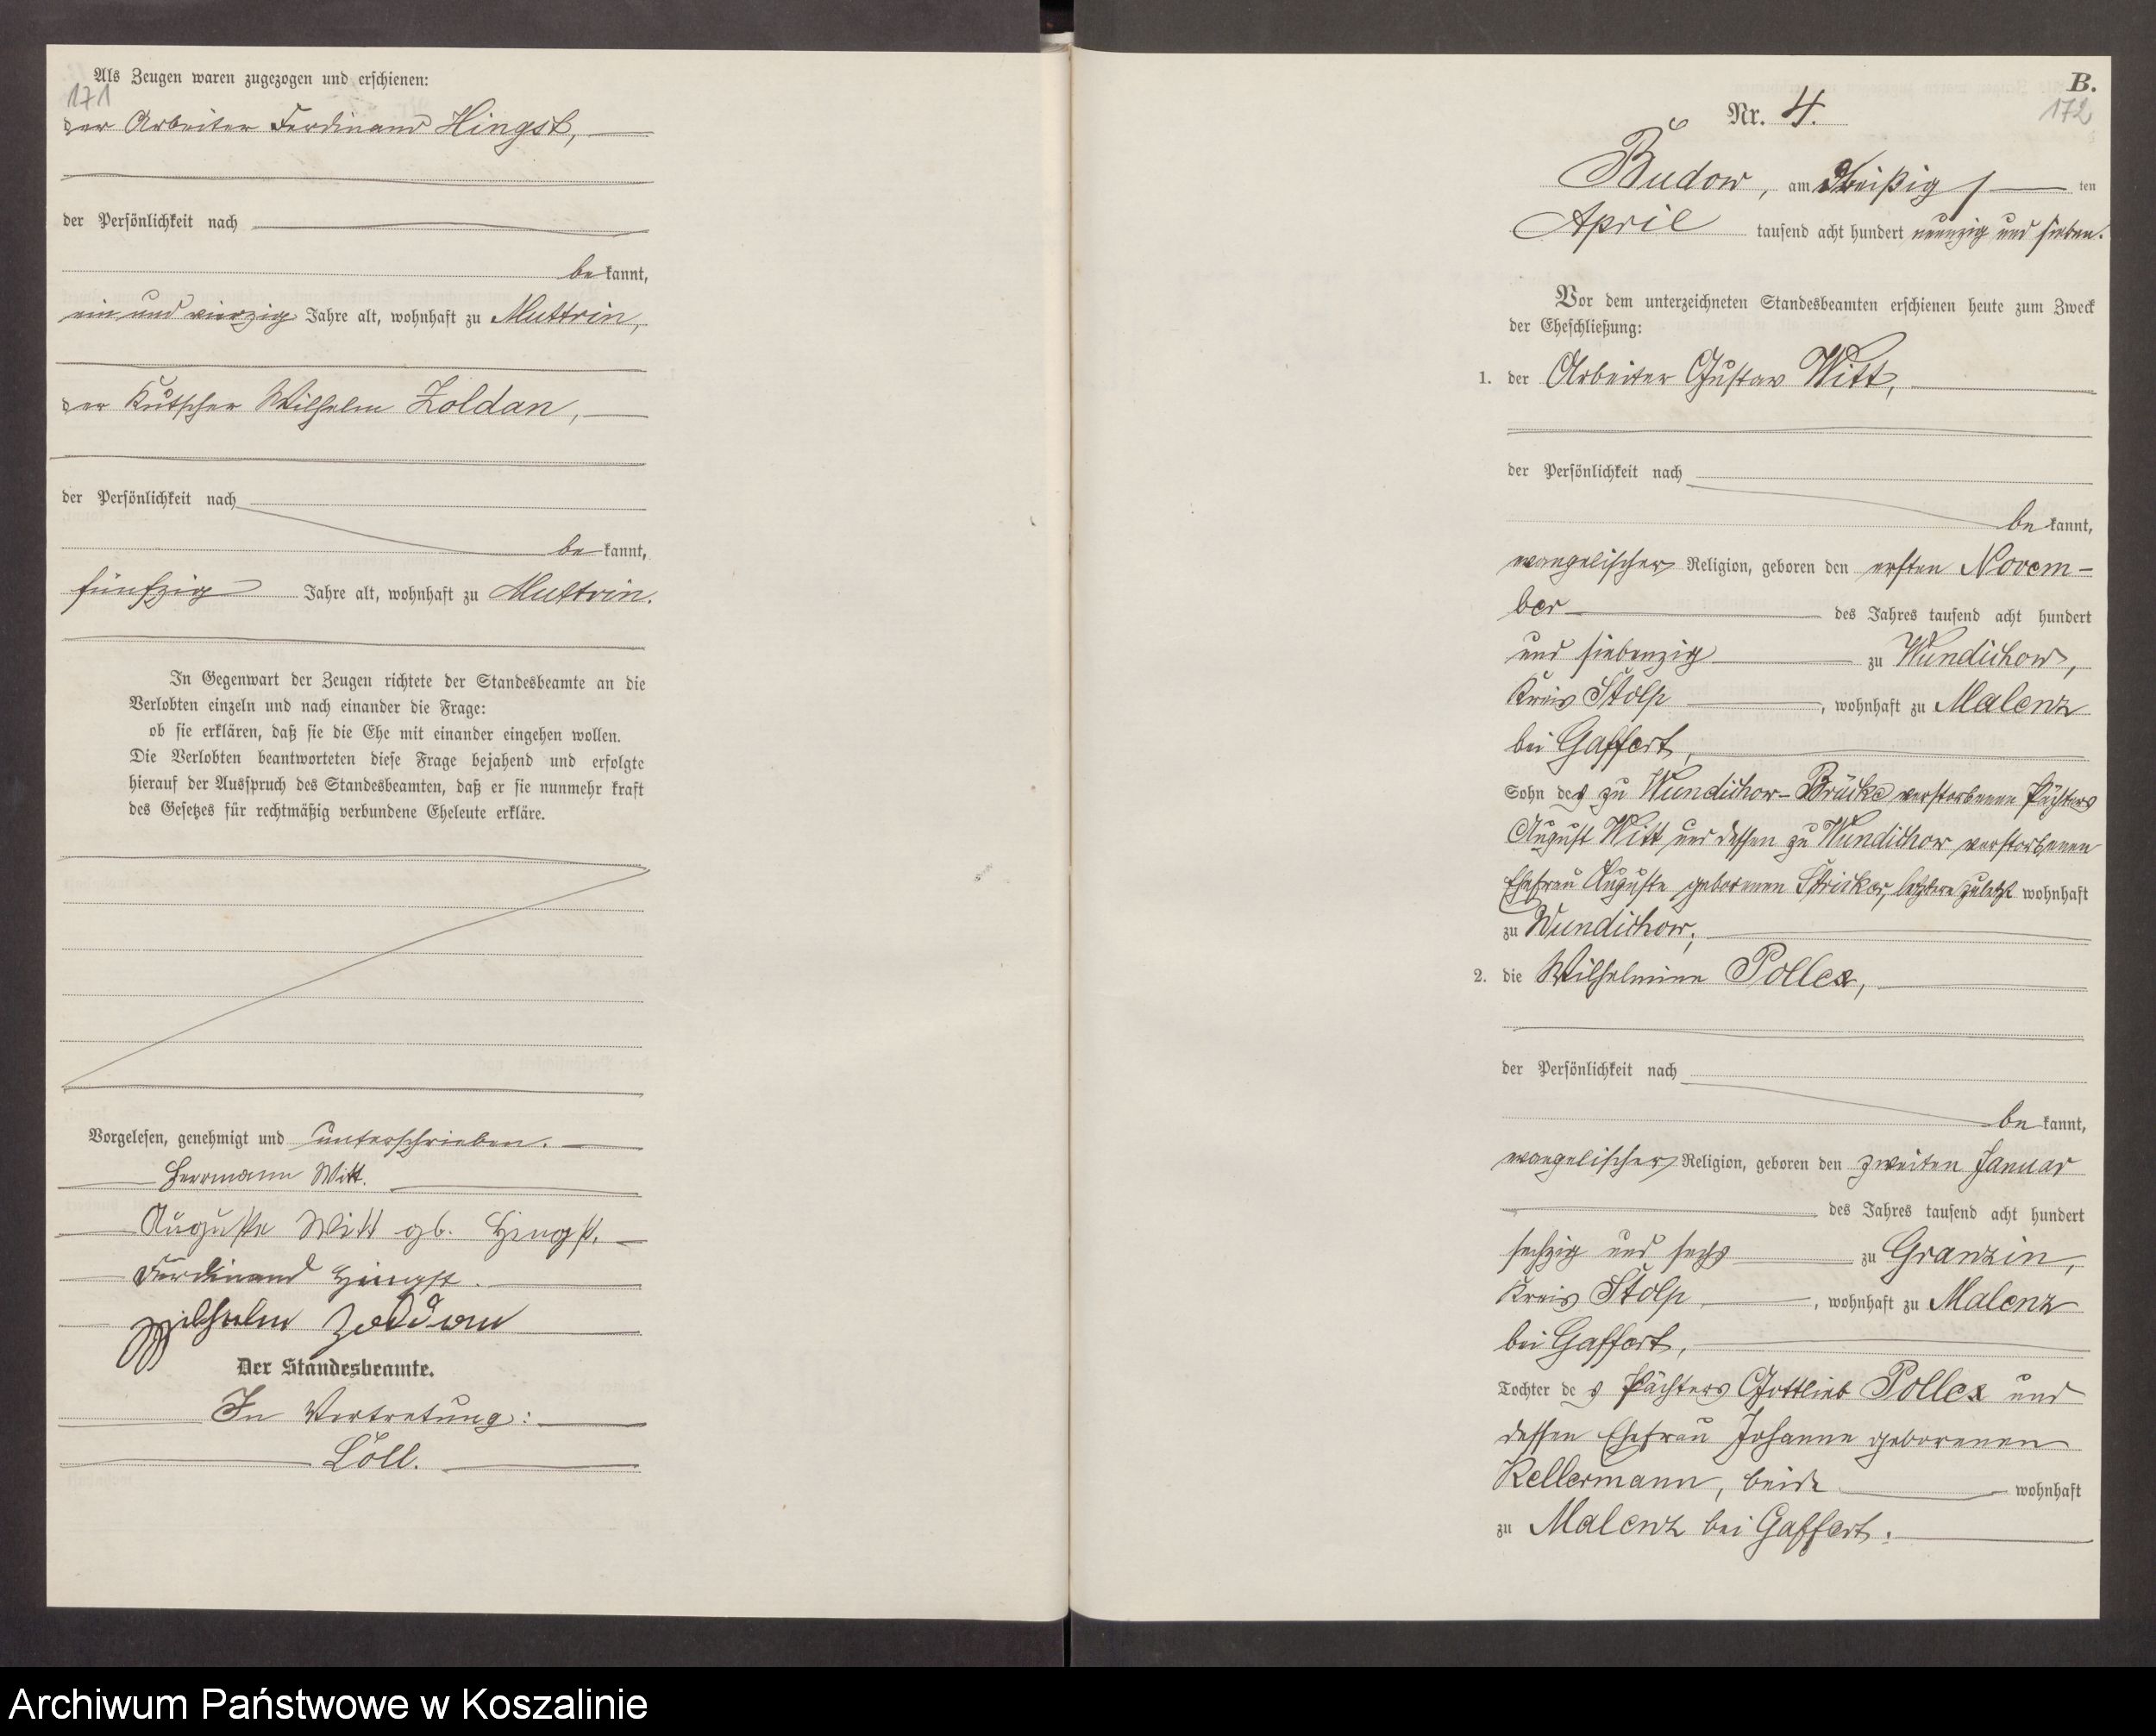 Als Zeugen waren zugezogen und erschienen:
171
der Arbeiter Ferdinand Hingst,
der Persönlichkeit nach
be kannt,
ein und vierzig Jahre alt, wohnhaft zu Muttrin,
der Kutscher Wilhelm Zoldan,
der Persönlichkeit nach
be kannt,
fünfzig Jahre alt, wohnhaft zu Muttrin.
In Gegenwart der Zeugen richtete der Standesbeamte an die
Verlobten einzeln und nach einander die Frage:
ob sie erklären, daß sie die Ehe mit einander eingehen wollen.
Die Verlobten beantworteten diese Frage bejahend und erfolgte
hierauf der Ausspruch des Standesbeamten, daß er sie nunmehr kraft
des Gesetzes für rechtmäßig verbundene Eheleute erkläre.
Vorgelesen, genehmigt und unterschrieben.
Herrmann Witt.
Auguste Witt gb. Hingst.
Ferdinand Hingst.
Wilhelm Zoldan
Der Standesbeamte.
In Vertretung:
Löll.
B.
172
Nr. 4.
Budow, am dreißig ten
April tausend acht hundert neunzig und sieben.
Vor dem unterzeichneten Standesbeamten erschienen heute zum Zweck
der Eheschließung:
1. der Arbeiter Gustav Witt,
der Persönlichkeit nach
be kannt,
evangelischer Religion, geboren den ersten Novem-
ber des Jahres tausend acht hundert
und siebenzig zu Wundichow,
Kreis Stolp, wohnhaft zu Malenz
bei Gaffert,
Sohn des zu Wundichow-Brücke verstorbenen Pächters
August Witt und dessen zu Wundichow verstorbenen
Ehefrau Auguste geborenen Stricker, letztere zuletzt wohnhaft
zu Wundichow;
2. die Wilhelmine Pollex,
der Persönlichkeit nach
be kannt,
evangelischer Religion, geboren den zweiten Januar
des Jahres tausend acht hundert
sechzig und sechs zu Granzin,
Kreis Stolp, wohnhaft zu Malenz
bei Gaffert,
Tochter des Pächters Gottlieb Pollex und
dessen Ehefrau Johanne geborenen
Kellermann, beide wohnhaft
zu Malenz bei Gaffert.
Archiwum Państwowe w Koszalinie